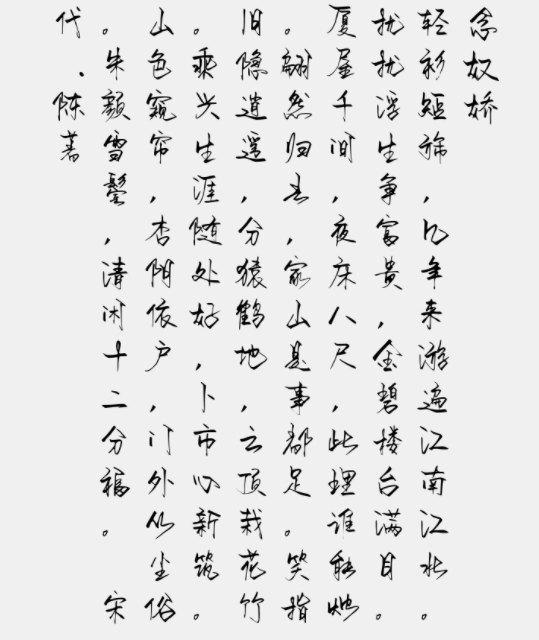 念奴娇
轻衫短旆，几年来游遍江南江北。
扰扰浮生争富贵，金碧楼台满目。
厦屋千间，夜床八尺，此理谁能烛
。翩然归去，家山是事都足。笑指
旧隐逍遥，分猿鹤地，云顶栽花竹
。乘兴生涯随处好，卜市心新筑。
山色窥帘，杏阴依户，门外从尘俗
。朱颜雪鬓，清闲十二分福。 宋
代．陈著